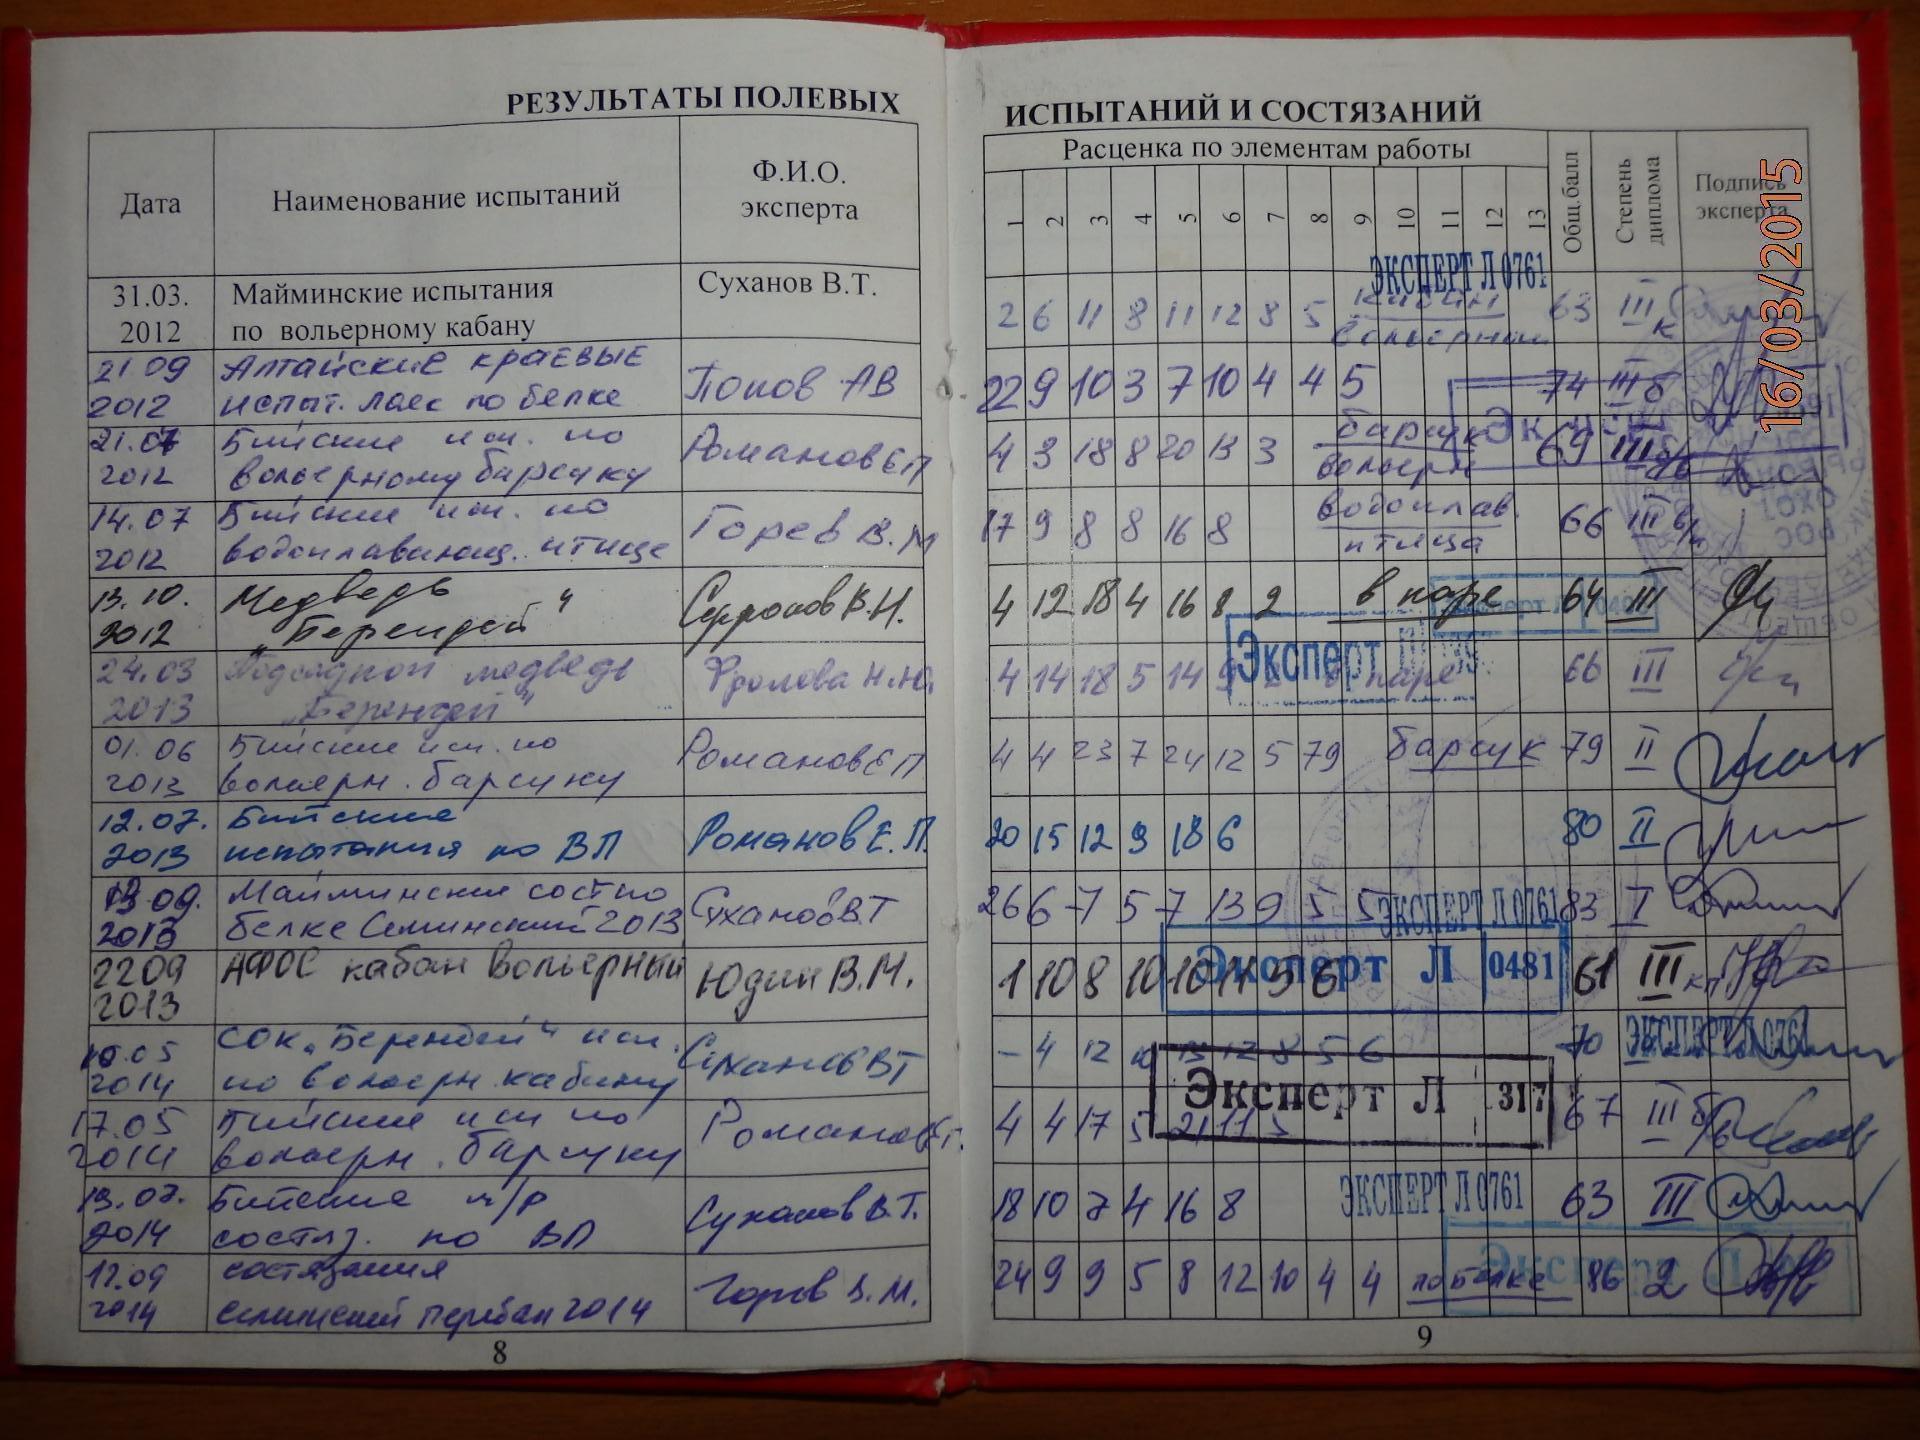 РЕЗУЛЬТАТЫ ПОЛЕВЫХ
Дата
Наименование испытаний
Ф.И.О.
эксперта
31.03.
2012
Майминские испытания
по вольерному кабану
Суханов В.Т.
21 09
2012
Алтайские краевые
испыт. лаек по белке
Попов АВ
21.07
2012
Бийские исп. по
вольерному барсуку
Романов Е П
14.07
2012
Бийские исп. по
водоплавающ. птице
Горев В.М
13.10.
2012
Медведь
"Берендей"
В.Н.
24.03
2013
Подсадной медведь
"Берендей"
Фролова Н.Ю.
01.06
2013
Бийские исп. по
вольерн. барсуку
Романов Е П
12.07.
2013
Бийские
испытания по ВП
Романов Е.П.
09.
2013
Майминские сост по
белке Семинский 2013
Суханов В.Т
22 09
2013
АФОС кабан вольерный
Юдин В.М.
05
2014
СОК "Берендей" исп.
по вольерн. кабану
Суханов ВТ
17.05
2014
Бийские исп по
вольерн. барсуку
Романов
13.07.
2014
Бийские м/р
состяз. по ВП
Суханов В.Т.
09
2014
состязания
семинский перевал 2014
Горев В.М.
8
ИСПЫТАНИЙ И СОСТЯЗАНИЙ
Расценка по элементам работы
1 2 3 4 5 6 7 8 9 10 11 12 13
Общ.балл
Степень
диплома
Подпись
эксперта
16/03/2015
ЭКСПЕРТ Л 0761
2 6 11 8 11 12 8 5 63 III к
вольерный
22 9 10 3 7 10 4 4 5 74 III б
4 3 18 8 20 13 3 барсук 69 III б/в
вольерн
17 9 8 8 16 8 водоплав. 66 III в/п
птица
4 12 18 4 16 8 2 в паре 64 III
Эксперт
4 14 18 5 14 паре 66 III
4 4 23 7 24 12 5 79 барсук 79 II
20 15 12 9 18 6 80 II
26 6 7 5 7 13 9 5 5 ЭКСПЕРТ Л 0761 83 I
Эксперт Л 0481
1 10 8 10 10 11 5 6 61 III кп
- 4 12 10 13 12 8 5 6 70 ЭКСПЕРТ Л 0761
Эксперт Л 317
4 4 17 5 21 11 5 67 III б/в
18 10 7 4 16 8 ЭКСПЕРТ Л 0761 63 III
24 9 9 5 8 12 10 4 4 по белке 86 2
9